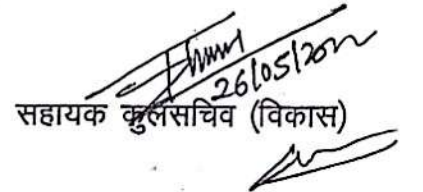 26/05/2022
सहायक कुलसचिव (विकास)